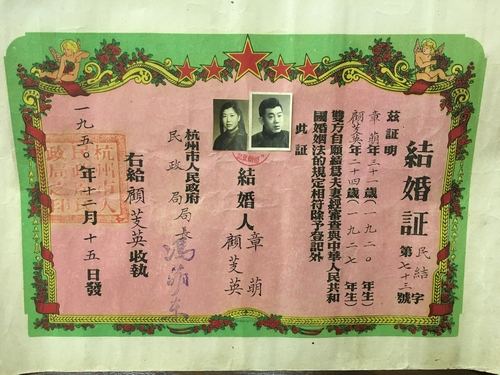 結婚証
民結字
第七十三號
茲証明
章萌 三十一歲(一九二〇年生)
顧芰英 二十四歲(一九二七年生)
雙方自願結爲夫妻經審查與中華人民共和
國婚姻法的規定相符除予登記外
此証
結婚人 章萌
顧芰英
杭州市人民政府
民政局局長
右給顧芰英收執
一九五〇年十二月十五日發